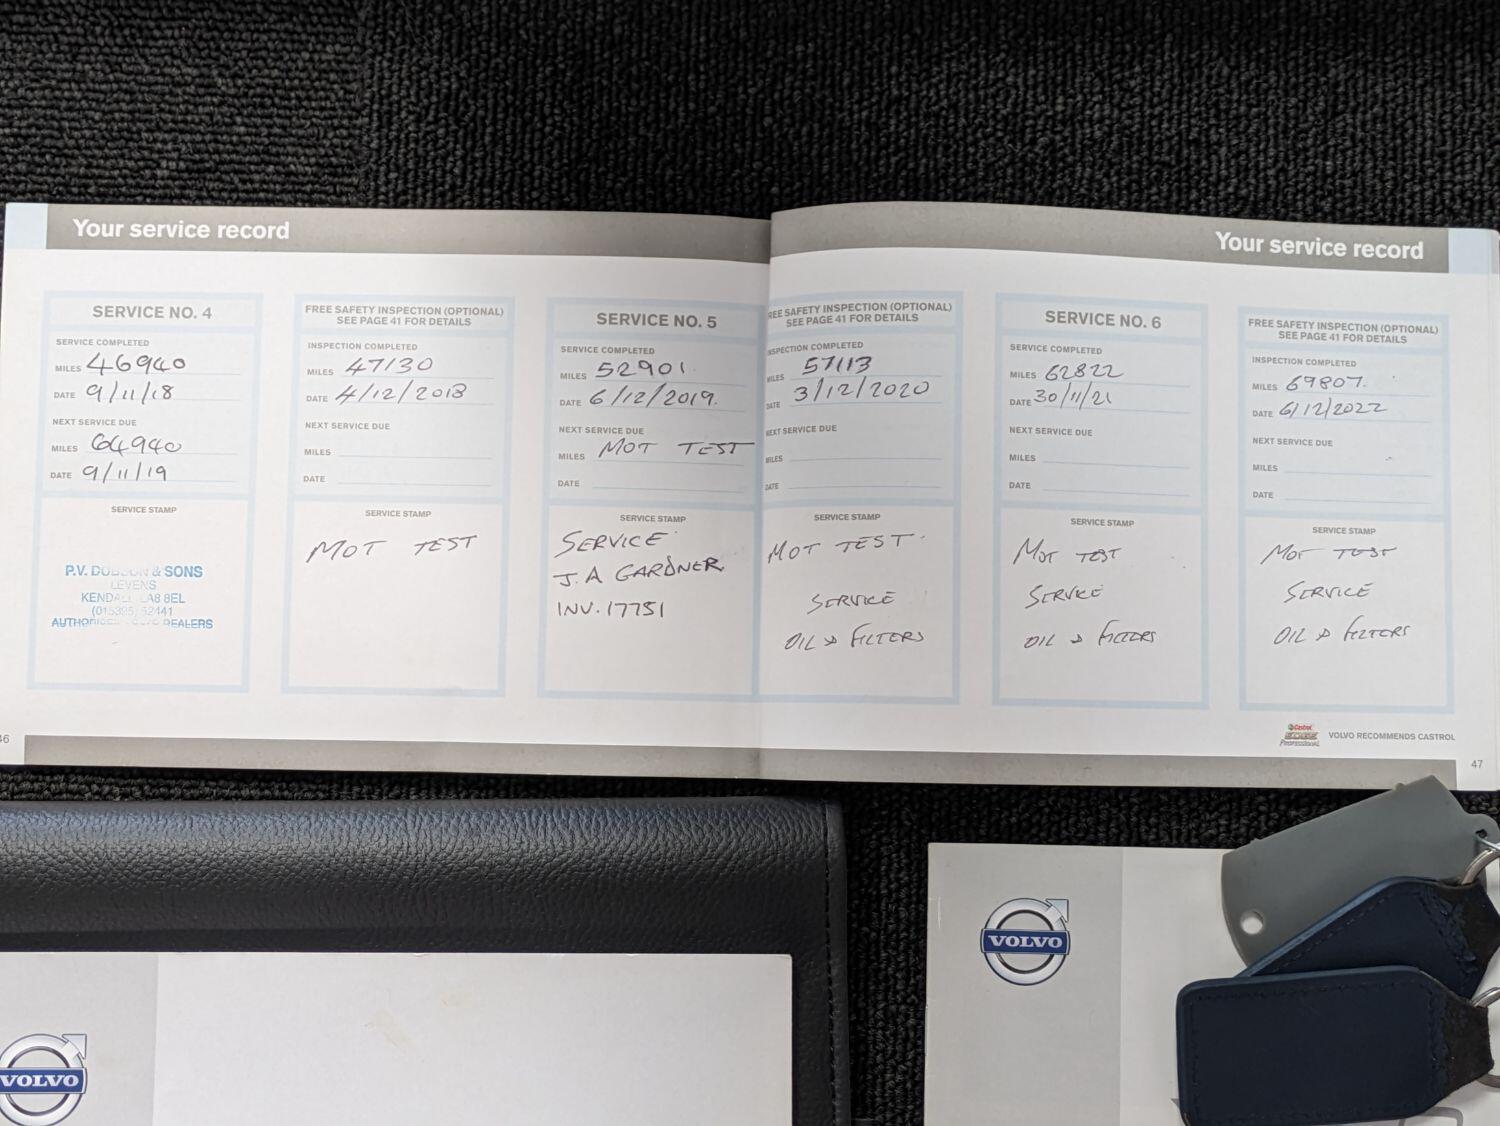 Your service record
SERVICE NO. 4
SERVICE COMPLETED
MILES 46940
DATE 9/11/18
NEXT SERVICE DUE
MILES 64940
DATE 9/11/19
SERVICE STAMP
P.V. DOBSON & SONS
LEVENS
KENDAL LA8 8EL
(015395) 62441
DEALERS
FREE SAFETY INSPECTION (OPTIONAL)
SEE PAGE 41 FOR DETAILS
INSPECTION COMPLETED
MILES 47130
DATE 4/12/2018
NEXT SERVICE DUE
MILES
DATE
SERVICE STAMP
MOT TEST
SERVICE NO. 5
SERVICE COMPLETED
MILES 52901
DATE 6/12/2019.
NEXT SERVICE DUE
MILES MOT TEST
DATE
SERVICE STAMP
SERVICE
J.A GARDNER
INV. 17751
46
Your service record
FREE SAFETY INSPECTION (OPTIONAL)
SEE PAGE 41 FOR DETAILS
INSPECTION COMPLETED
MILES 57113
DATE 3/12/2020
NEXT SERVICE DUE
MILES
DATE
SERVICE STAMP
MOT TEST
SERVICE
OIL & FILTERS
SERVICE NO. 6
SERVICE COMPLETED
MILES 62822
DATE 30/11/21
NEXT SERVICE DUE
MILES
DATE
SERVICE STAMP
MOT TEST
SERVICE
OIL & FILTERS
FREE SAFETY INSPECTION (OPTIONAL)
SEE PAGE 41 FOR DETAILS
INSPECTION COMPLETED
MILES 69807.
DATE 6/12/2022
NEXT SERVICE DUE
MILES
DATE
SERVICE STAMP
MOT TEST
SERVICE
OIL & FILTERS
Castrol
EDGE
Professional
VOLVO RECOMMENDS CASTROL
47
VOLVO
VOLVO